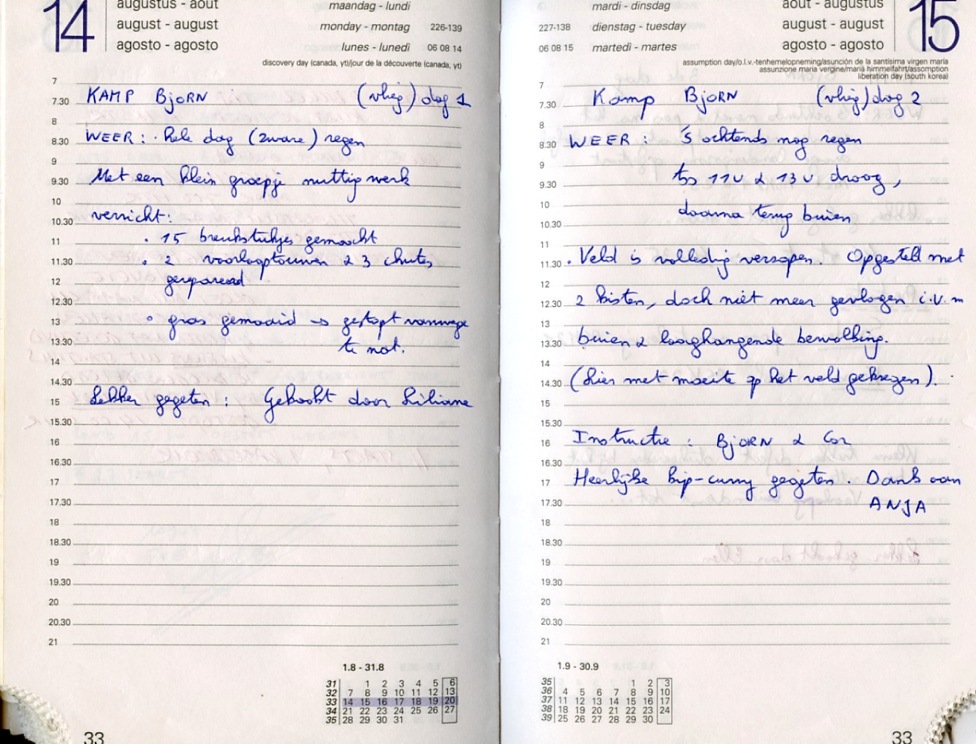 14
augustus - août
august - august
agosto - agosto
maandag - lundi
monday - montag 226-139
lunes - lunedì 06 08 14
discovery day (canada, yt)/jour de la découverte (canada, yt)
7
7.30 KAMP BJORN (vlieg) dag 1
8
8.30 WEER: Hele dag (zware) regen
9
9.30 Met een klein groepje nuttig werk
10
10.30 verricht:
11 • 15 breukstukjes gemaakt
11.30 • 2 voorlooptouwen & 3 chutes
12 gerepareerd
12.30
13 • gras gemaaid → gestopt vanwege
13.30 te nat.
14
14.30
15 Lekker gegeten: Gekookt door Liliane
15.30
16
16.30
17
17.30
18
18.30
19
19.30
20
20.30
21
1.8 - 31.8
31 1 2 3 4 5 6
32 7 8 9 10 11 12 13
33 14 15 16 17 18 19 20
34 21 22 23 24 25 26 27
35 28 29 30 31
33
15
mardi - dinsdag
227-138 dienstag - tuesday
06 08 15 martedì - martes
août - augustus
august - august
agosto - agosto
assumption day/o.l.v.-tenhemelopneming/asunción de la santísima virgen maría
assunzione maria vergine/mariä himmelfahrt/assomption
liberation day (south korea)
7
7.30 Kamp BJORN (vlieg) dag 2
8
8.30 WEER: 's ochtends nog regen
9
9.30 tss 11u & 13u droog,
10
10.30 daarna terug buien
11
11.30 • Veld is volledig verzopen. Opgesteld met
12
12.30 2 kisten, doch niet meer gevlogen i.v.m
13
13.30 buien & laaghangende bewolking.
14
14.30 (Lier met moeite op het veld gekregen).
15
15.30
16 Instructie: BJORN & Cor
16.30
17 Heerlijke kip-curry gegeten. Dank aan
17.30 ANJA
18
18.30
19
19.30
20
20.30
21
1.9 - 30.9
35 1 2 3
36 4 5 6 7 8 9 10
37 11 12 13 14 15 16 17
38 18 19 20 21 22 23 24
39 25 26 27 28 29 30
33